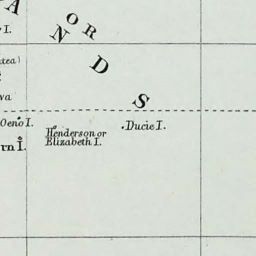 A
N
D
S
OR
I.
va
Oeno I.
Ducie I.
Henderson or
Elizabeth I.
rn I.